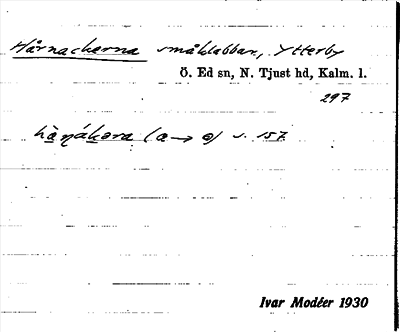 Hårnackarna småklabbar, Ytterby
Ö. Ed sn, N. Tjust hd, Kalm. l.
297
(a → ə) s. 157.
Ivar Modéer 1930